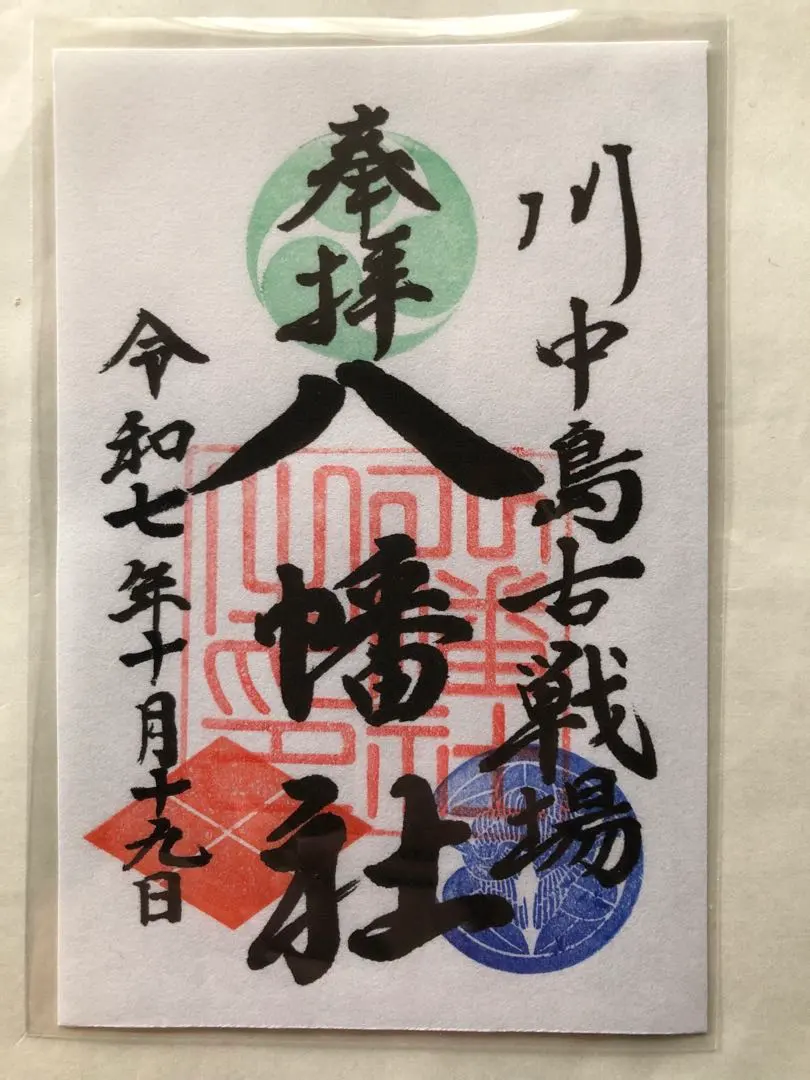 川中島古戦場
奉拝
八幡社
令和七年十月十九日